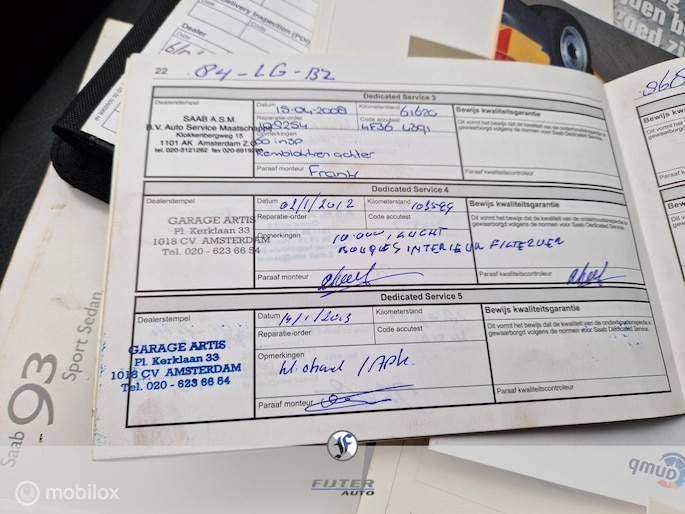 Delivery Inspection (PDI)
Dealer
Saab 93 Sport Sedan
22 84-LG-BZ
Dedicated Service 3
Dealerstempel
SAAB A.S.M.
B.V. Auto Service Maatschappij
Klokkenbergweg 15
1101 AK Amsterdam Z.O.
tel. 020-3121262 fax 020-6919
Datum 15-04-2008 Kilometerstand 61620
Reparatie-order Code accutest
Opmerkingen
insp
Remblokken achter
Paraaf monteur Frank
Bewijs kwaliteitsgarantie
Dit vormt het bewijs dat de kwaliteit van de onderhoudsinspectie is
gewaarborgd volgens de normen voor Saab Dedicated Service.
Dedicated Service 4
Dealerstempel
GARAGE ARTIS
Pl. Kerklaan 33
1018 CV AMSTERDAM
Tel. 020 - 623 66 54
Datum 02/1/2012 Kilometerstand 103599
Reparatie-order Code accutest
Opmerkingen 10.000, LUCHT
BOUGIES INTERIEUR FILTER
Paraaf monteur
Bewijs kwaliteitsgarantie
Dit vormt het bewijs dat de kwaliteit van de onderhoudsinspectie is
gewaarborgd volgens de normen voor Saab Dedicated Service.
Paraaf kwaliteitscontroleur
Dedicated Service 5
Dealerstempel
GARAGE ARTIS
Pl. Kerklaan 33
1018 CV AMSTERDAM
Tel. 020 - 623 66 54
Datum 14/1/2013 Kilometerstand
Reparatie-order Code accutest
Opmerkingen
/ APK.
Paraaf monteur
Bewijs kwaliteitsgarantie
Dit vormt het bewijs dat de kwaliteit van de onderhoudsinspectie is
gewaarborgd volgens de normen voor Saab Dedicated Service.
Paraaf kwaliteitscontroleur
mobilox
FIJTER
AUTO